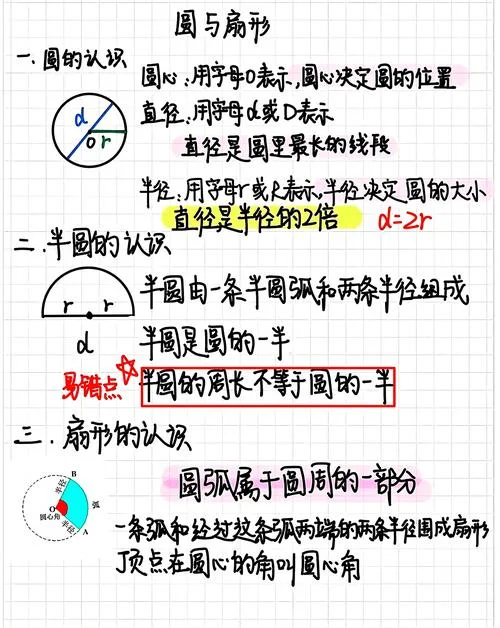 圆与扇形
一.圆的认识
圆心:用字母O表示,圆心决定圆的位置
d
O r
直径:用字母d或D表示
直径是圆里最长的线段
半径:用字母r或R表示,半径决定圆的大小
直径是半径的2倍 d=2r
二.半圆的认识
r r
d
半圆由一条半圆弧和两条半径组成
半圆是圆的一半
易错点☆ 半圆的周长不等于圆的一半
三.扇形的认识
B
半径
O
圆心角
半径
A
弧
圆弧属于圆周的一部分
一条弧和经过这条弧两端的两条半径围成扇形
顶点在圆心的角叫圆心角